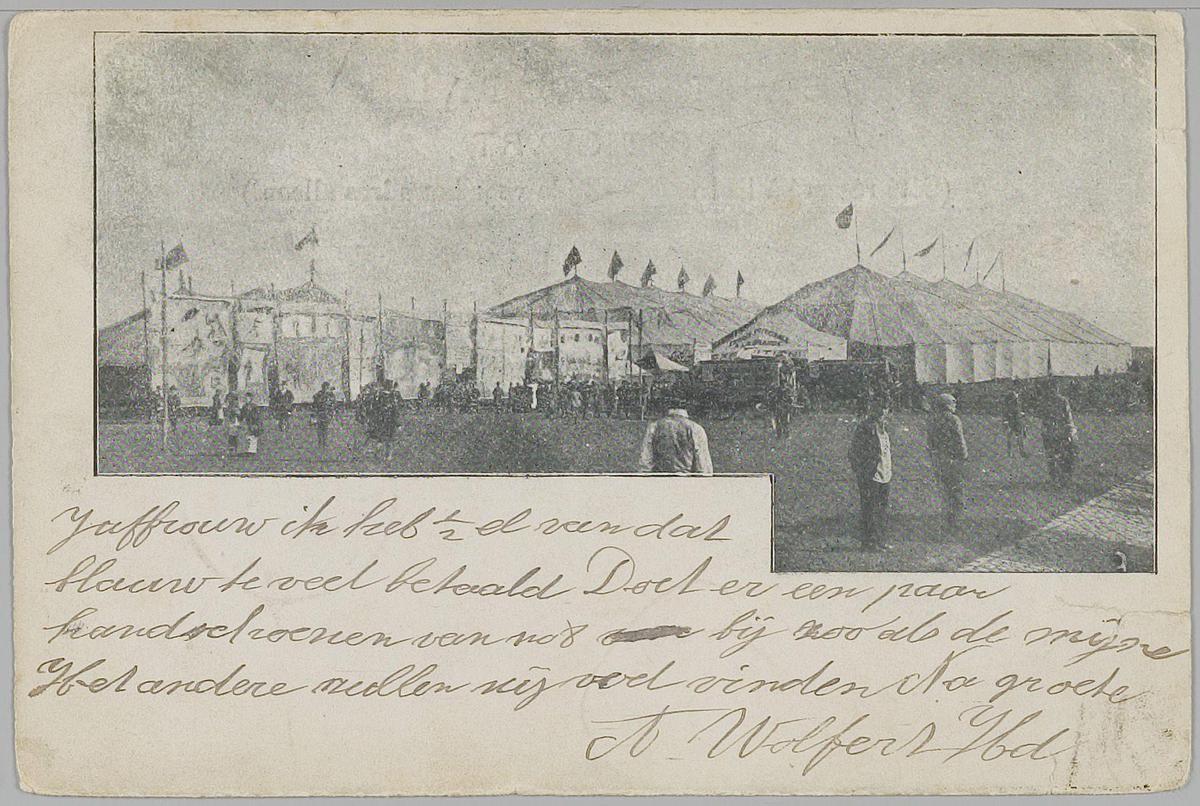 Jaffrouw ik heb ½ el van dat
blauw te veel betaald Doet er een paar
handschoenen van no 8 bij zoo als de mijne
Het andere zullen wij wel vinden Na groete
A Wolfert Hd